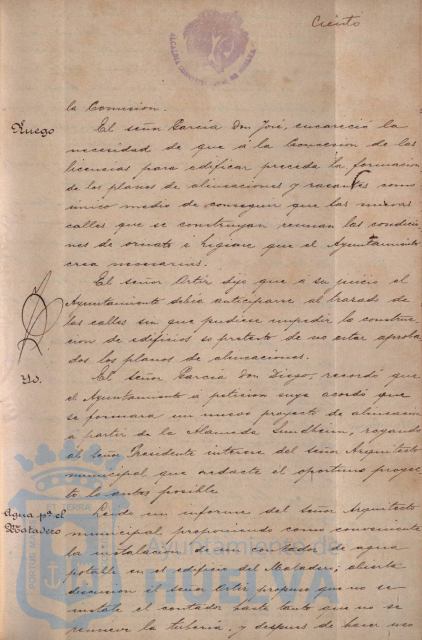 Ciento
la Comision.
Ruego
El señor García Don José, encareció la
necesidad de que á la concesion de las
licencias para edificar preceda la formacion
de los planos de alineaciones y rasantes como
único medio de conseguir que las nuevas
calles que se construyan reunan las condicio-
nes de ornato e higiene que el Ayuntamiento
crea necesarias.
El señor Ortiz dijo que á su juicio el
Ayuntamiento debia anticiparse al trazado de
las calles sin que pudiese impedir la construc-
cion de edificios so pretesto de no estar aproba-
dos los planos de alineaciones.
Yd.
El señor García Don Diego, recordó que
el Ayuntamiento á peticion suya acordó que
se formara un nuevo proyecto de alineacion
á partir de la Alameda Sundheim, rogando
al señor Presidente interese del señor Arquitecto
municipal que redacte el oportuno proyec-
to lo antes posible
Agua pª. el
Matadero
Leido un informe del señor Arquitecto
municipal proponiendo como conveniente
la instalacion de un contador de agua
potable en el edificio del Matadero; abierta
discusion el señor Ortiz propuso que no se
instale el contador hasta tanto que no se
renueve la tuberia, y despues de hacer uso
Ayuntamiento de
HUELVA